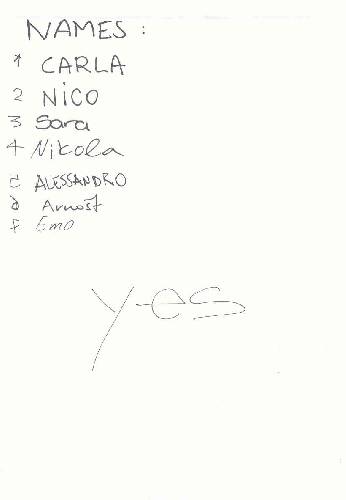 NAMES :
1 CARLA
2 NICO
3 Sara
4 Nikola
c ALESSANDRO
d Arnošt
f Emo
yes